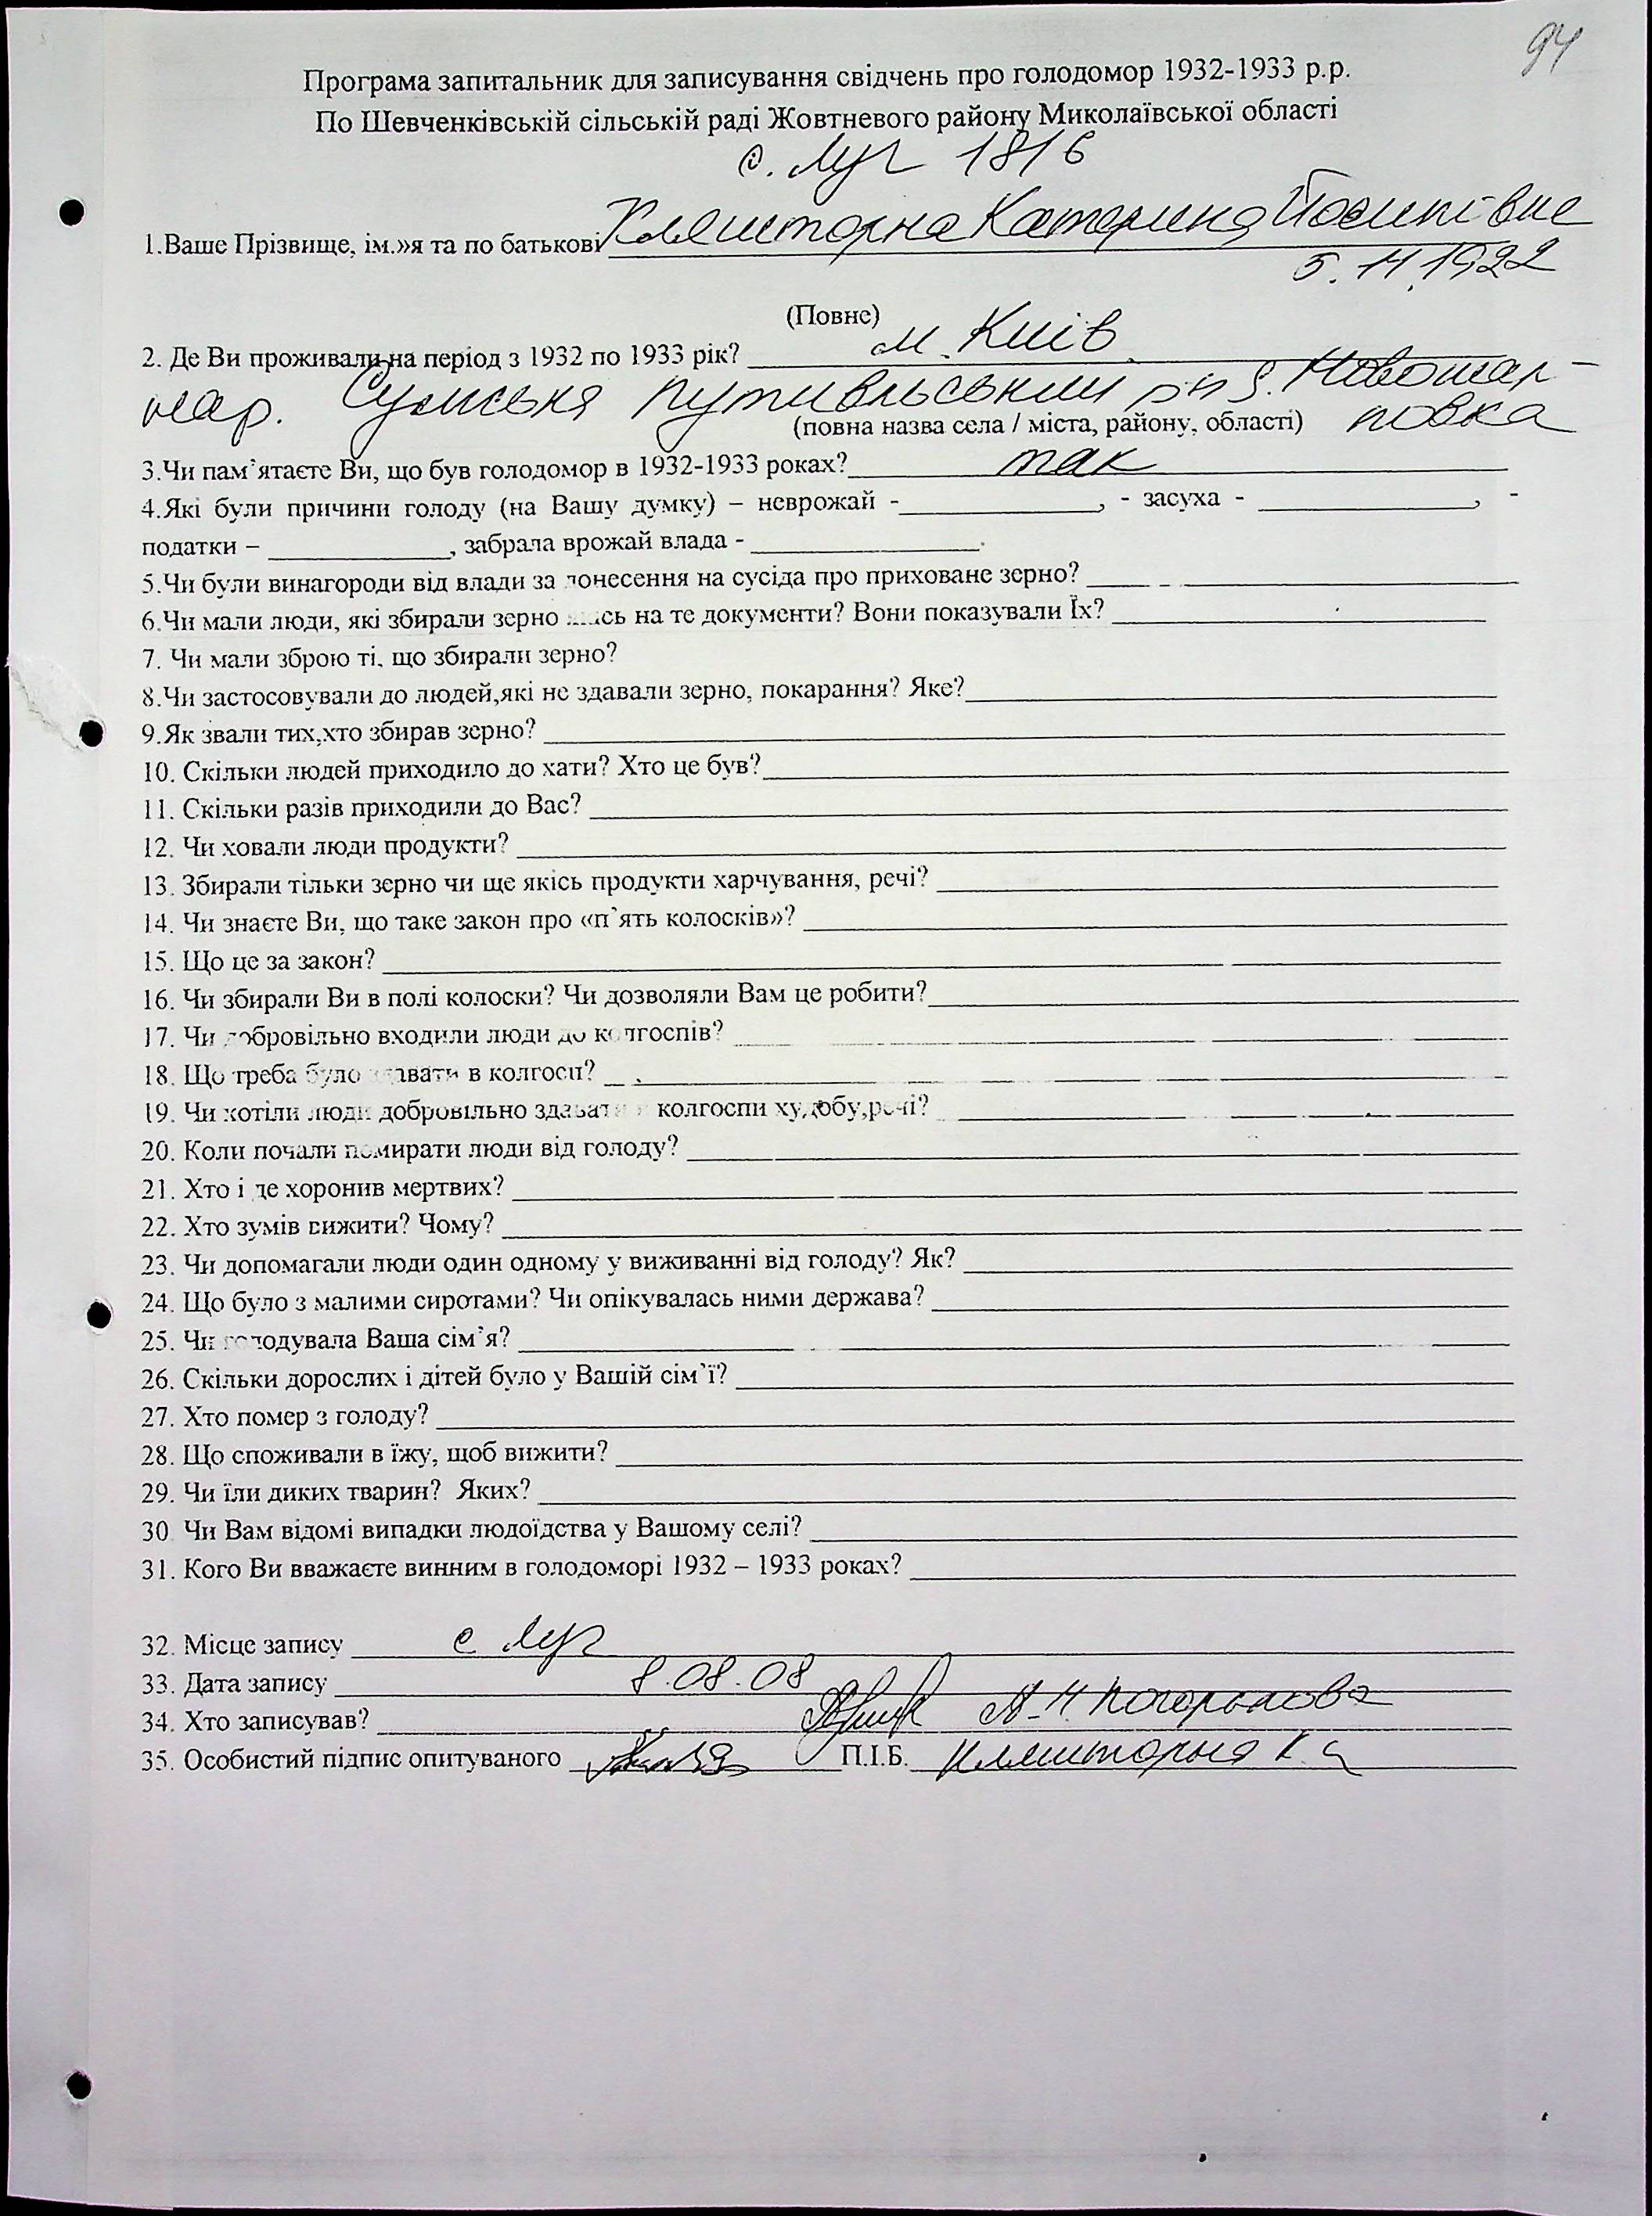 94
Програма запитальник для записування свідчень про голодомор 1932-1933 р.р.
По Шевченківській сільській раді Жовтневого району Миколаївської області
с. Луч 1816
1.Ваше Прізвище, ім.»я та по батькові Кляшторна Катерина Йосипівна
5.11.1922
(Повне)
2. Де Ви проживали на період з 1932 по 1933 рік? м. Київ.
нар. Сумська Путивльський рн с.
(повна назва села / міста, району, області)
3.Чи пам'ятаєте Ви, що був голодомор в 1932-1933 роках? так
4.Які були причини голоду (на Вашу думку) – неврожай - , - засуха - , -
податки – , забрала врожай влада - .
5.Чи були винагороди від влади за донесення на сусіда про приховане зерно?
6.Чи мали люди, які збирали зерно якісь на те документи? Вони показували Їх?
7. Чи мали зброю ті, що збирали зерно?
8.Чи застосовували до людей,які не здавали зерно, покарання? Яке?
9.Як звали тих,хто збирав зерно?
10. Скільки людей приходило до хати? Хто це був?
11. Скільки разів приходили до Вас?
12. Чи ховали люди продукти?
13. Збирали тільки зерно чи ще якісь продукти харчування, речі?
14. Чи знаєте Ви, що таке закон про «п`ять колосків»?
15. Що це за закон?
16. Чи збирали Ви в полі колоски? Чи дозволяли Вам це робити?
17. Чи добровільно входили люди до колгоспів?
18. Що треба було здавати в колгосп?
19. Чи хотіли люди добровільно здавати в колгоспи худобу,речі?
20. Коли почали помирати люди від голоду?
21. Хто і де хоронив мертвих?
22. Хто зумів вижити? Чому?
23. Чи допомагали люди один одному у виживанні від голоду? Як?
24. Що було з малими сиротами? Чи опікувалась ними держава?
25. Чи голодувала Ваша сім'я?
26. Скільки дорослих і дітей було у Вашій сім'ї?
27. Хто помер з голоду?
28. Що споживали в їжу, щоб вижити?
29. Чи їли диких тварин? Яких?
30 Чи Вам відомі випадки людоїдства у Вашому селі?
31. Кого Ви вважаєте винним в голодоморі 1932 – 1933 роках?
32. Місце запису с Луч
33. Дата запису 8.08.08
34. Хто записував?
35. Особистий підпис опитуваного П.І.Б. Кляшторна К.